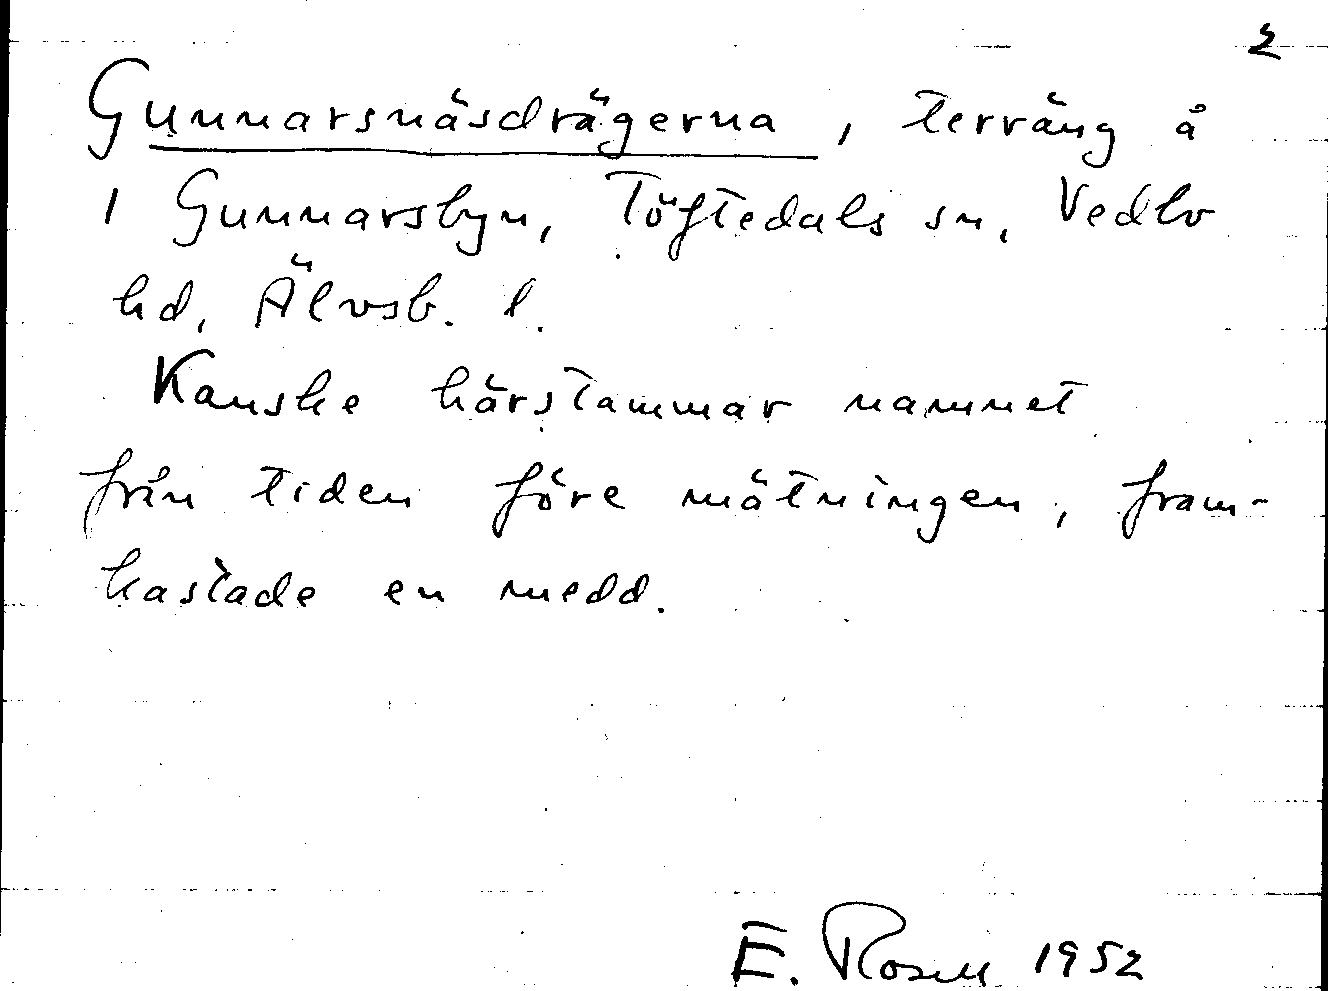 2
Gunnarsnäsdrägerna, terräng å
1 Gunnarsbyn, Töftedals sn, Vedbo
hd, Älvsb. l.
Kanske härstammar namnet
från tiden före mätningen, fram-
kastade en medd.
E. Rosell 1952